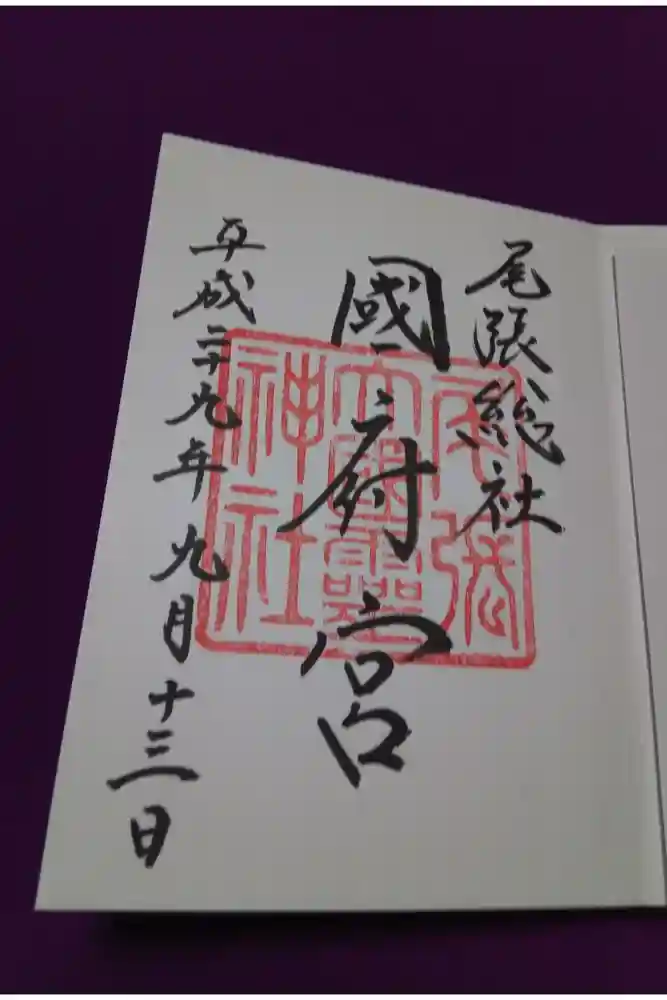 尾張総社
國府宮
平成二十九年九月十三日
尾張
大國霊
神社